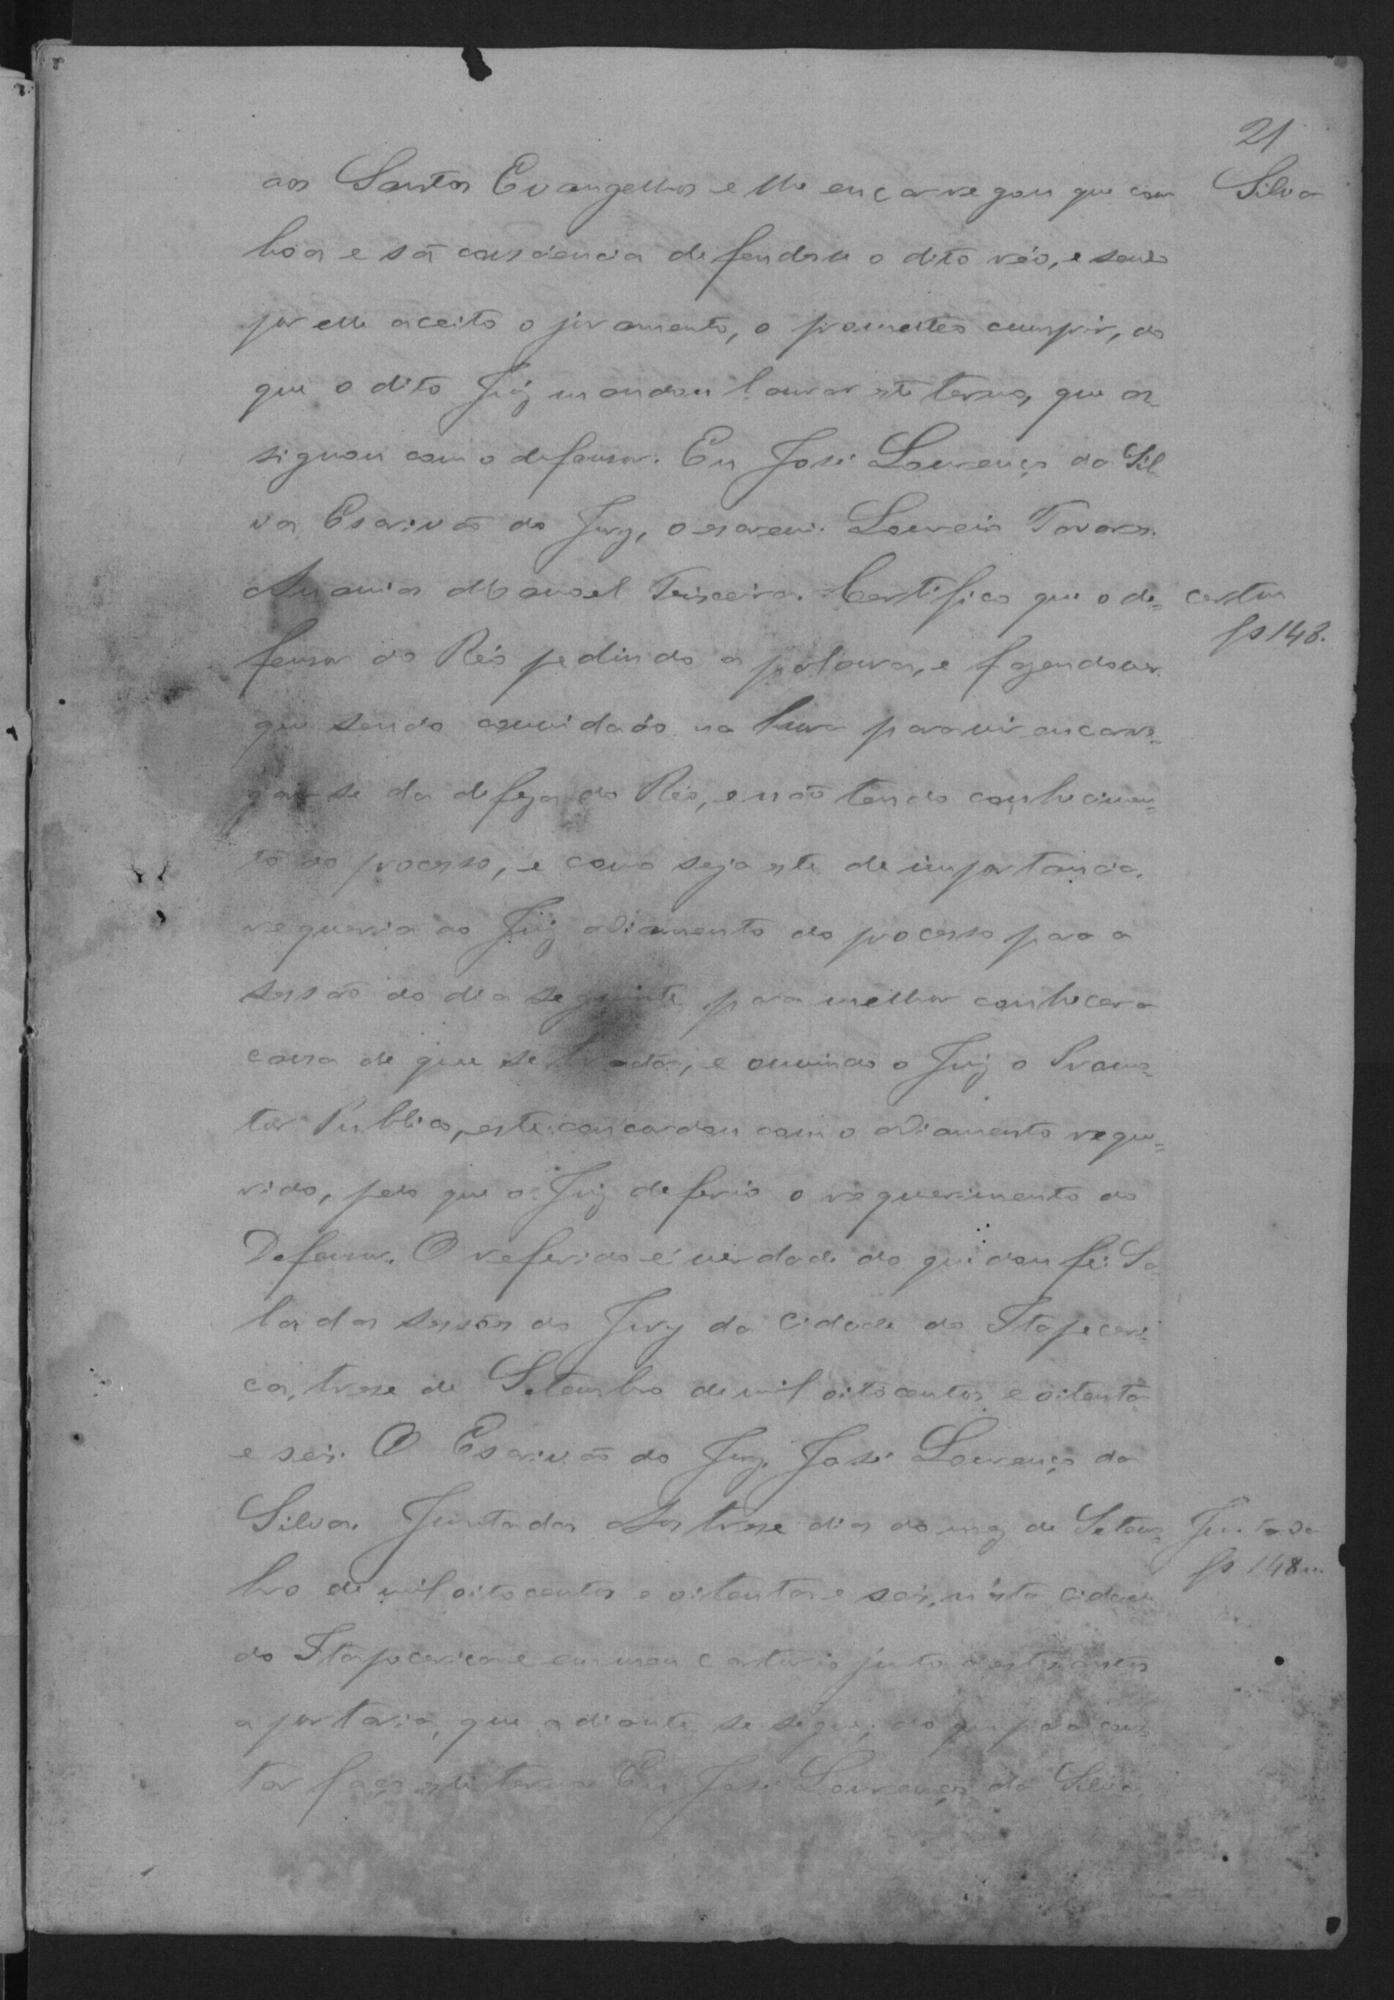 21
Silva
aos Santos Evangelhos e lhe encarregou que com
boa e sã consciencia defendesse o dito réo, e sendo
por elle aceito o juramento, o prometteo cumprir, do
que o dito Juiz mandou lavrar este termo, que as
signou com o defensor. Eu José Lourenço da Sil
va Escrivão do Jury, o escrevi. Loureiro Tavares.
Ananias Manoel Teixeira. Certifico que o de=
fensor do Réo pedindo a palavra, e fazendo ver
que sendo convidado na hora para vir encarre=
gar-se da defeza do Réo, e não tendo conhecimen=
to do processo, e como seja este de importancia,
requeria ao Juiz adiamento do processo para a
sessão do dia seguinte para melhor conhecer a
causa de que se tratar, e ouvindo o Juiz o Promo=
tor Publico, este concordou com o adiamento reque=
rido, pelo que o Juiz deferio o requerimento do
Defensor. O referido é verdade do que dou fé. Sa
la das sessões do Jury da Cidade de Itapeceri
ca, trese de Setembro de mil oitocentos e oitenta
e seis. O Escrivão do Jury José Lourenço da
Silva. Juntada Aos trese dias do mez de Setem=
bro de mil oitocentos e oitenta e seis, nesta cidade
de Itapecerica e em meu cartorio junto a estes autos
a portaria, que adiante se segue; do que para cons
tar faço este termo Eu José Lourenço da Silva
fs 148.
Juntada
fs 148